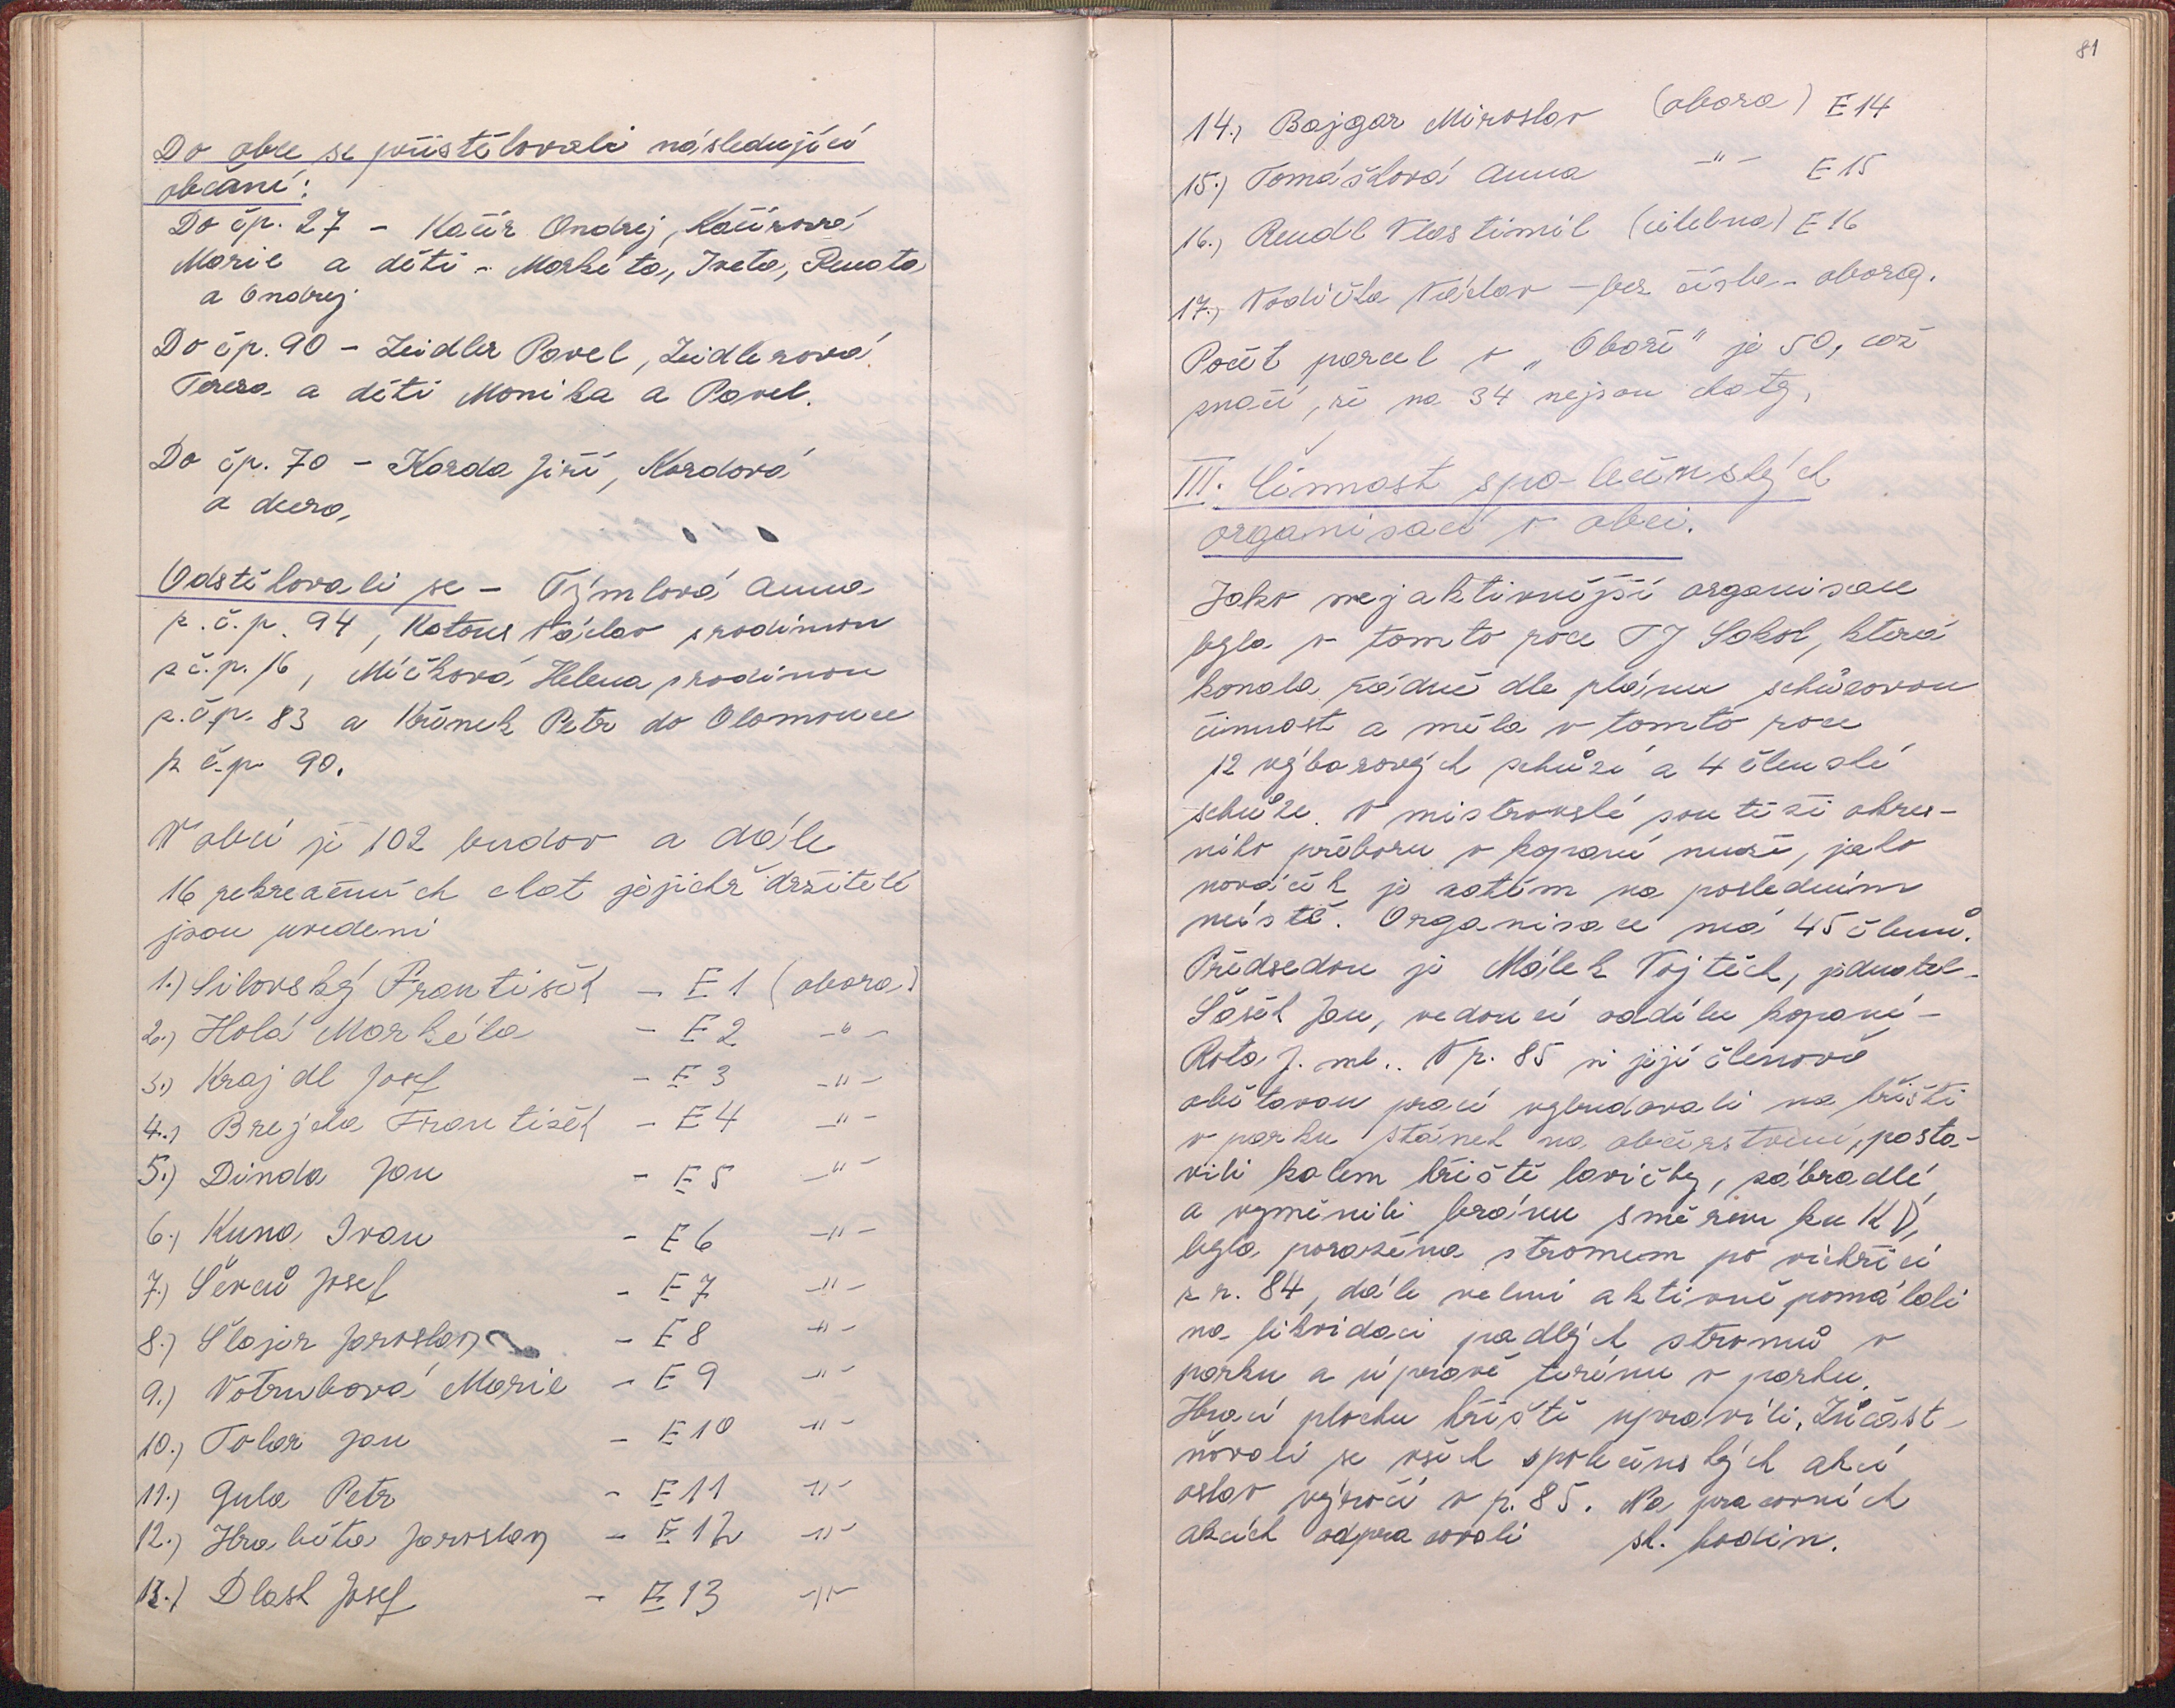 Do obce se přistěhovali následující
občané:
Do čp. 27 - Kačír Ondrej, Kačírová
Marie a děti - Markéta, Iveta, Renata
a Ondrej
Do čp. 90 - Zeidler Pavel, Zeidlerová
Tereza a děti Monika a Pavel.
Do čp. 70 - Korda Jiří, Kordová
a dcera,
Odstěhovali se - Týmlová Anna
z. č. p. 94, Katous Václav s rodinou
z č. p. 16, Míčková Helena s rodinou
z. čp. 83 a Křínek Petr do Olomouce
z č. p. 90.
V obci je 102 budov a dále
16 rekreačních chat jejichž držitelé
jsou uvedeni
1.) Silovský František - E 1 (obora)
2.) Holá Markéta - E 2 -"-
3.) Krajdl Josef - E 3 -"-
4.) Brejcha František - E 4 -"-
5.) Dinda Jan - E 5 -"-
6.) Kuna Ivan - E 6 -"-
7.) Ševců Josef - E 7 -"-
8.) Šlajer Jaroslav - E 8 -"-
9.) Votrubová Marie - E 9 -"-
10.) Tolar Jan - E 10 -"-
11.) Gula Petr - E 11 -"-
12.) Hraběta Jaroslav - E 12 -"-
13.) Dlask Josef - E 13 -"-
81
14.) Bajgar Miroslav (obora) E 14
15.) Tomášková Anna -"- E 15
16.) Rendl Vlastimil (cihelna) E 16
17.) Vodička Václav - bez čísla - obora.
Počet parcel v „Oboře" je 50, což
značí, že na 34 nejsou chaty.
III. Činnost společenských
organisací v obci.
Jako nejaktivnější organisace
byla v tomto roce TJ Sokol, která
konala řádně dle plánu schůzovou
činnost a měla v tomto roce
12 výborových schůzí a 4 členské
schůze. V mistrovské soutěži okres-
ního přeboru v kopané muži, jako
nováček je zatím na posledním
místě. Organisace má 45 členů.
Předsedou je Málek Vojtěch, jednatel -
Šášek Jan, vedoucí oddílu kopané -
Rota J. ml.. V r. 85 si její členové
obětavou prací vybudovali na hřišti
v parku stánek na občerstvení, posta-
vili kolem hřiště lavičky, zábradlí,
a vyměnili bránu směrem ku KD,
byla poražena stromem po vichřici
z r. 84, dále velmi aktivně pomáhali
na likvidaci padlých stromů v
parku a úpravě terénu v parku.
Hrací plochu hřiště upravili. Zúčast-
ňovali se všech společenských akcí
oslav výročí v r. 85. Na pracovních
akcích odpracovali sk. hodin.